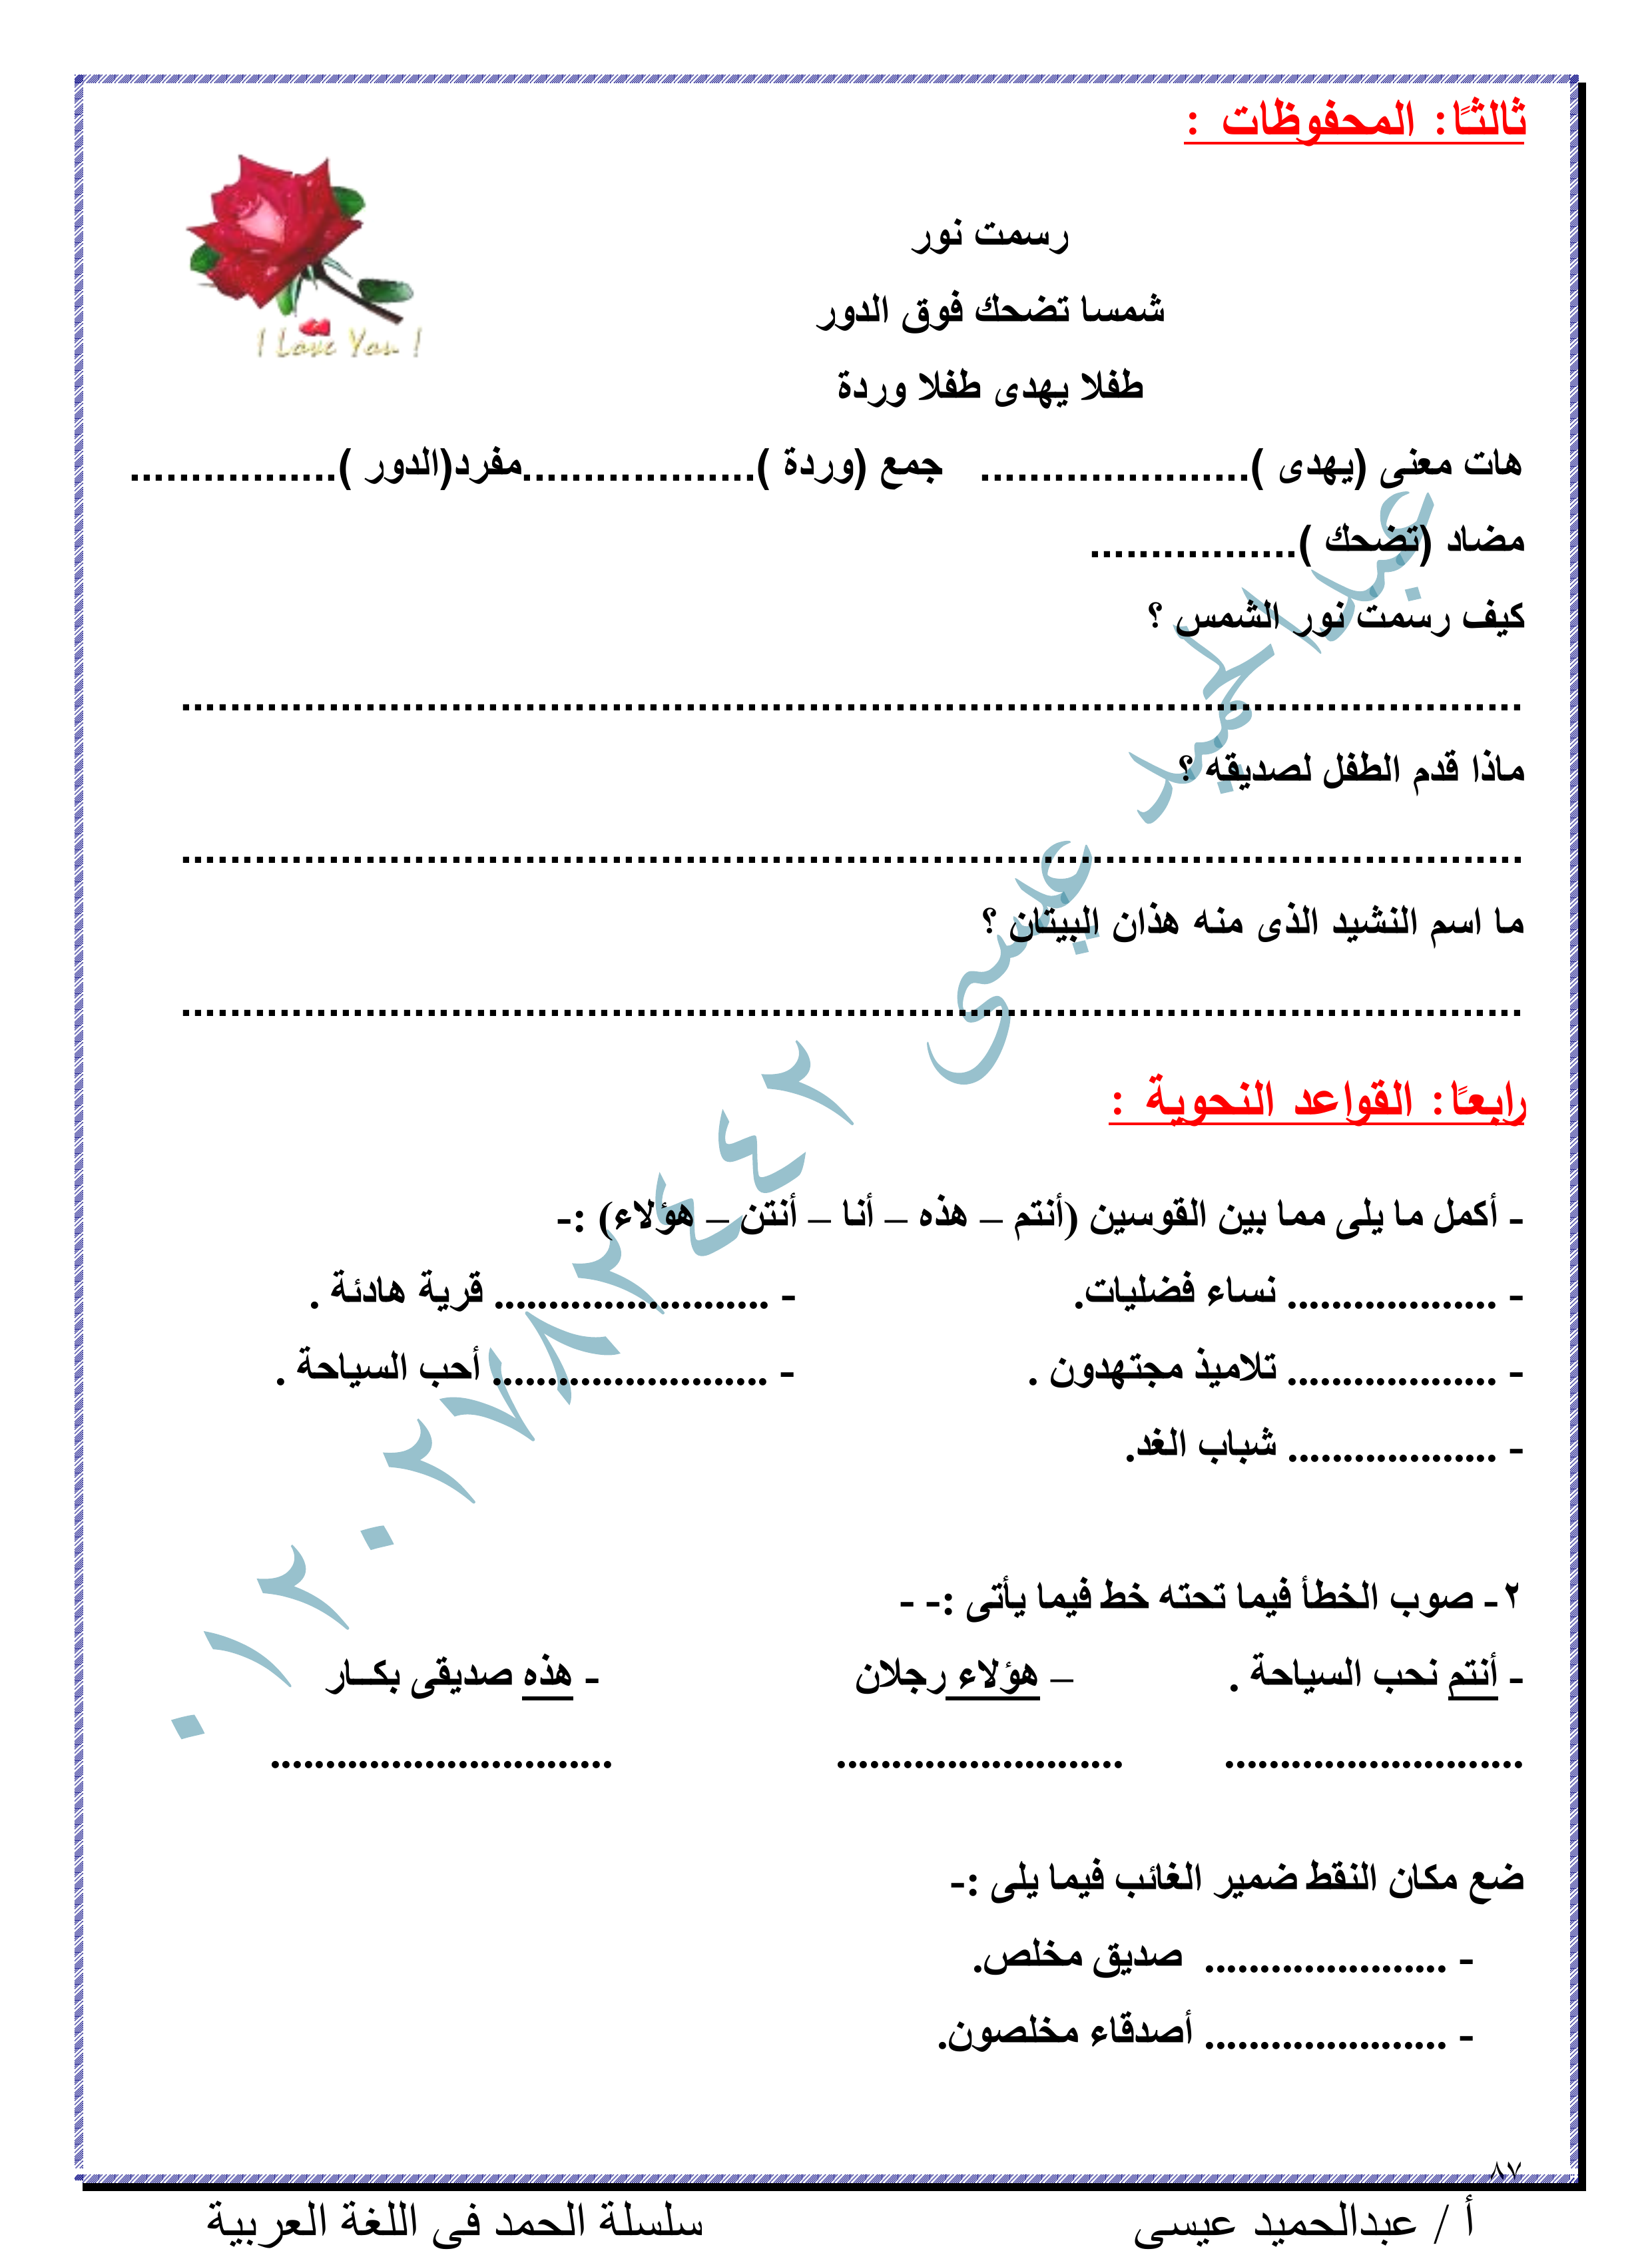 ثالثًا: المحفوظات :
رسمت نور
I Love You !
شمسا تضحك فوق الدور
طفلا يهدى طفلا وردة
هات معنى (يهدى )...................... جمع (وردة )...................مفرد(الدور ).................
مضاد (تضحك ).................
كيف رسمت نور الشمس ؟
..............................................................................................................
ماذا قدم الطفل لصديقه ؟
..............................................................................................................
ما اسم النشيد الذى منه هذان البيتان ؟
..............................................................................................................
رابعًا: القواعد النحوية :
- أكمل ما يلى مما بين القوسين (أنتم – هذه – أنا – أنتن – هؤلاء) :-
- ................... نساء فضليات. - ......................... قرية هادئة .
- ................... تلاميذ مجتهدون . - ......................... أحب السياحة .
- ................... شباب الغد.
٢- صوب الخطأ فيما تحته خط فيما يأتى :- -
- أنتم نحب السياحة . – هؤلاء رجلان - هذه صديقى بكــار
........................... .......................... ...............................
ضع مكان النقط ضمير الغائب فيما يلى :-
- ...................... صديق مخلص.
- ...................... أصدقاء مخلصون.
عبدالحميد عيسى ٠١٢٠٢٧٨٢٤٤٢
٨٧
أ / عبدالحميد عيسى سلسلة الحمد فى اللغة العربية